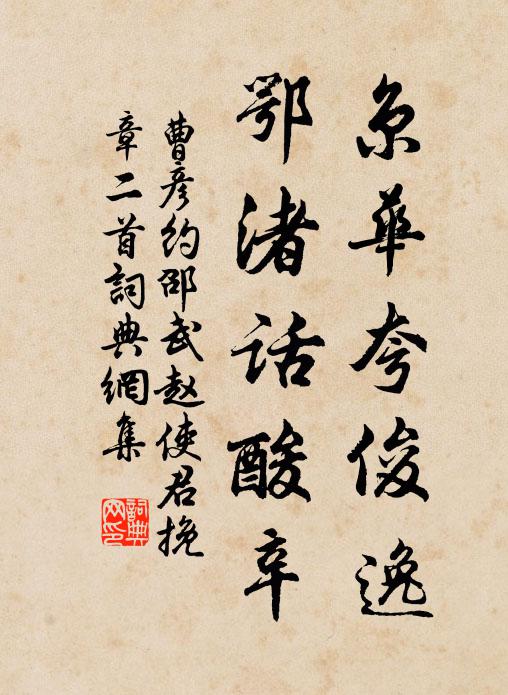 京華夸俊逸
鄂渚話酸辛
曹彥約邵武赵使君挽
章二首詞典網集
詞典網印